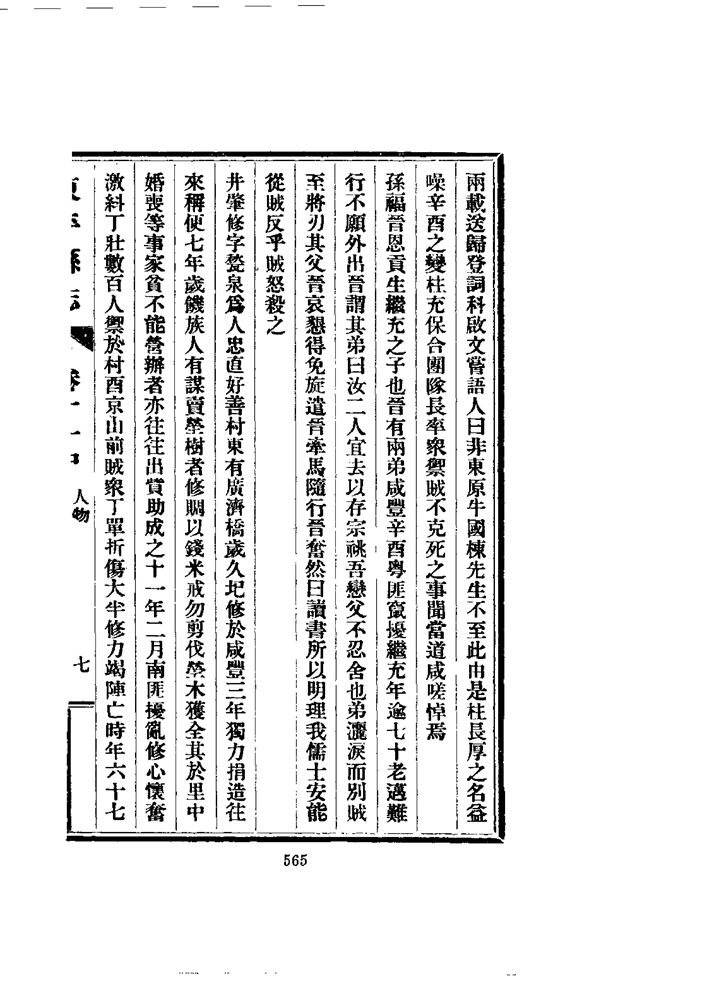 兩載送歸登詞科啟文嘗語人曰非東原牛國棟先生不至此由是柱長厚之名益
噪辛酉之變柱充保合團隊長率衆禦賊不克死之事聞當道咸嗟悼焉
孫福晉恩貢生繼充之子也晉有兩弟咸豐辛酉粵匪竄擾繼充年逾七十老邁難
行不願外出晉謂其弟曰汝二人宜去以存宗祧吾戀父不忍舍也弟灑淚而別賊
至將刃其父晉哀懇得免旋遣晉牽馬隨行晉奮然曰讀書所以明理我儒士安能
從賊反乎賊怒殺之
井肇修字甃泉爲人忠直好善村東有廣濟橋歲久圮修於咸豐三年獨力捐造往
來稱便七年歲饑族人有謀賣塋樹者修賙以錢米戒勿剪伐塋木獲全其於里中
婚喪等事家貧不能營辦者亦往往出貲助成之十一年二月南匪擾亂修心懷奮
激糾丁壯數百人禦於村酉京山前賊衆丁單折傷大半修力竭陣亡時年六十七
東平縣志
卷十一中
人物
七
565